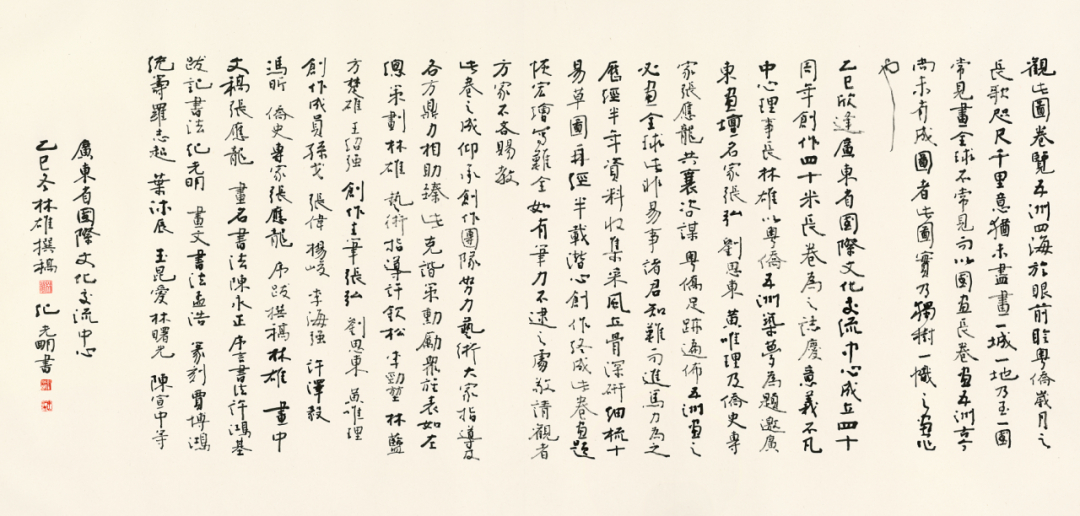 觀此圖卷覽五洲四海於眼前聆粵僑歲月之
長歌咫尺千里意猶未盡畫一城一地乃至一國
常見畫全球不常見而以國畫長卷畫五洲古今
尚未有成圖者此圖實乃獨樹一幟之畫也
乙巳欣逢廣東省國際文化交流中心成立四十
周年創作四十米長卷為之誌慶意義不凡
中心理事長林雄以粵僑五洲築夢為題邀廣
東畫壇名家張弘 劉思東 黃唯理及僑史專
家張應龍共襄咨謀粵僑足跡遍佈五洲畫之
必畫全球此非易事諸君知難而進馬力為之
歷經半年資料收集采風立骨深研細梳十
易草圖再經半載潛心創作終成此卷畫題
恢宏繪寫難全如有筆力不逮之處敬請觀者
方家不吝賜教
此卷之成仰承創作團隊努力藝術大家指導及
各方鼎力相助臻此克諧策勳勵眾註表如左
總策劃林雄 藝術指導許欽松 李勁堃 林藍
方楚雄 王紹強 創作主筆張弘 劉思東 黃唯理
創作成員孫戈 張偉 楊崚 李海強 許澤毅
馮昕 僑史專家張應龍 序跋撰稿林雄 畫中
文稿張應龍 畫名書法陳永正 序言書法許鴻基
跋記書法紀光明 畫文書法孟浩 篆刻賈博鴻
統籌羅志超 葉沐辰 玉昆愛 林曙光 陳宣中等
廣東省國際文化交流中心
乙巳冬林雄撰稿 紀光明書